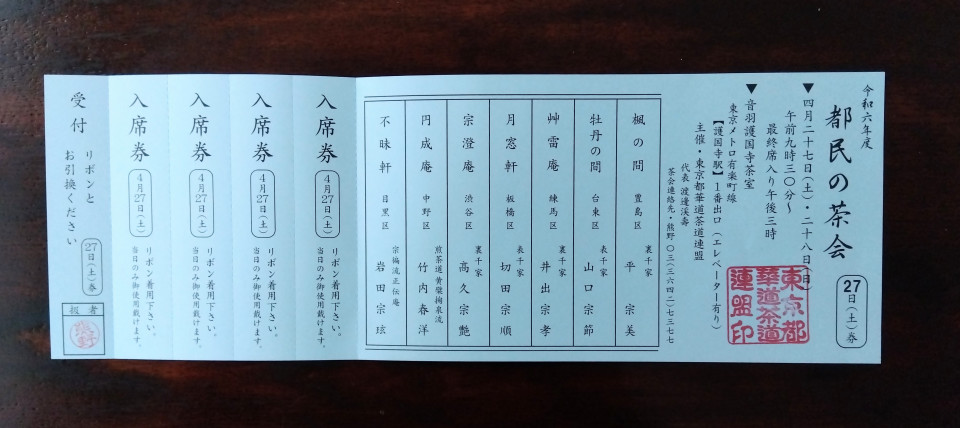 令和六年度
都民の茶会
27日(土)券
▼四月二十七日(土)・二十八日(日)
午前九時三〇分〜
最終席入り午後三時
▼音羽護国寺茶室
東京メトロ有楽町線
【護国寺駅】1番出口(エレベーター有り)
主催・東京都華道茶道連盟
代表 渡邊渓壽
茶会連絡先・熊野 〇三(三六四二)七三七七
東京都
華道茶道
連盟印
楓の間 豊島区 裏千家 平 宗美
牡丹の間 台東区 表千家 山口宗節
艸雷庵 練馬区 裏千家 井出宗孝
月窓軒 板橋区 表千家 切田宗順
宗澄庵 渋谷区 裏千家 高久宗艶
円成庵 中野区 煎茶道黄檗掬泉流 竹内春洋
不昧軒 目黒区 宗徧流正伝庵 岩田宗玹
入席券
4月27日(土)
リボン着用下さい。
当日のみ御使用戴けます。
入席券
4月27日(土)
リボン着用下さい。
当日のみ御使用戴けます。
入席券
4月27日(土)
リボン着用下さい。
当日のみ御使用戴けます。
入席券
4月27日(土)
リボン着用下さい。
当日のみ御使用戴けます。
受付
リボンと
お引換ください
27日(土)券
扱者